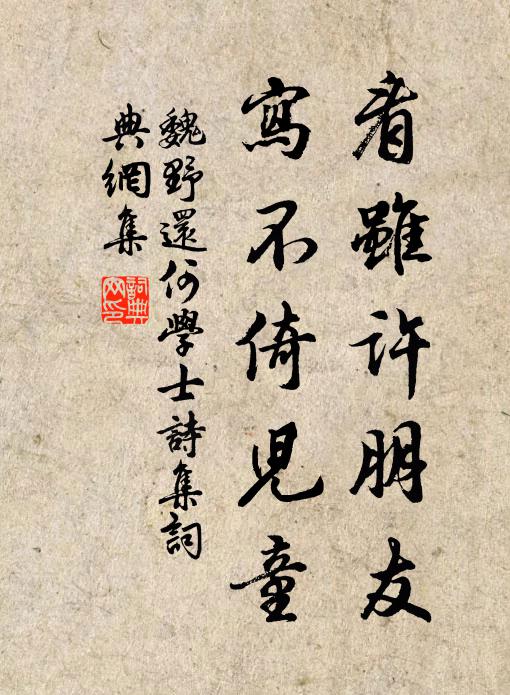 看雖許朋友
寫不倚兒童
魏野還何學士詩集詞
典網集
詞典
网印